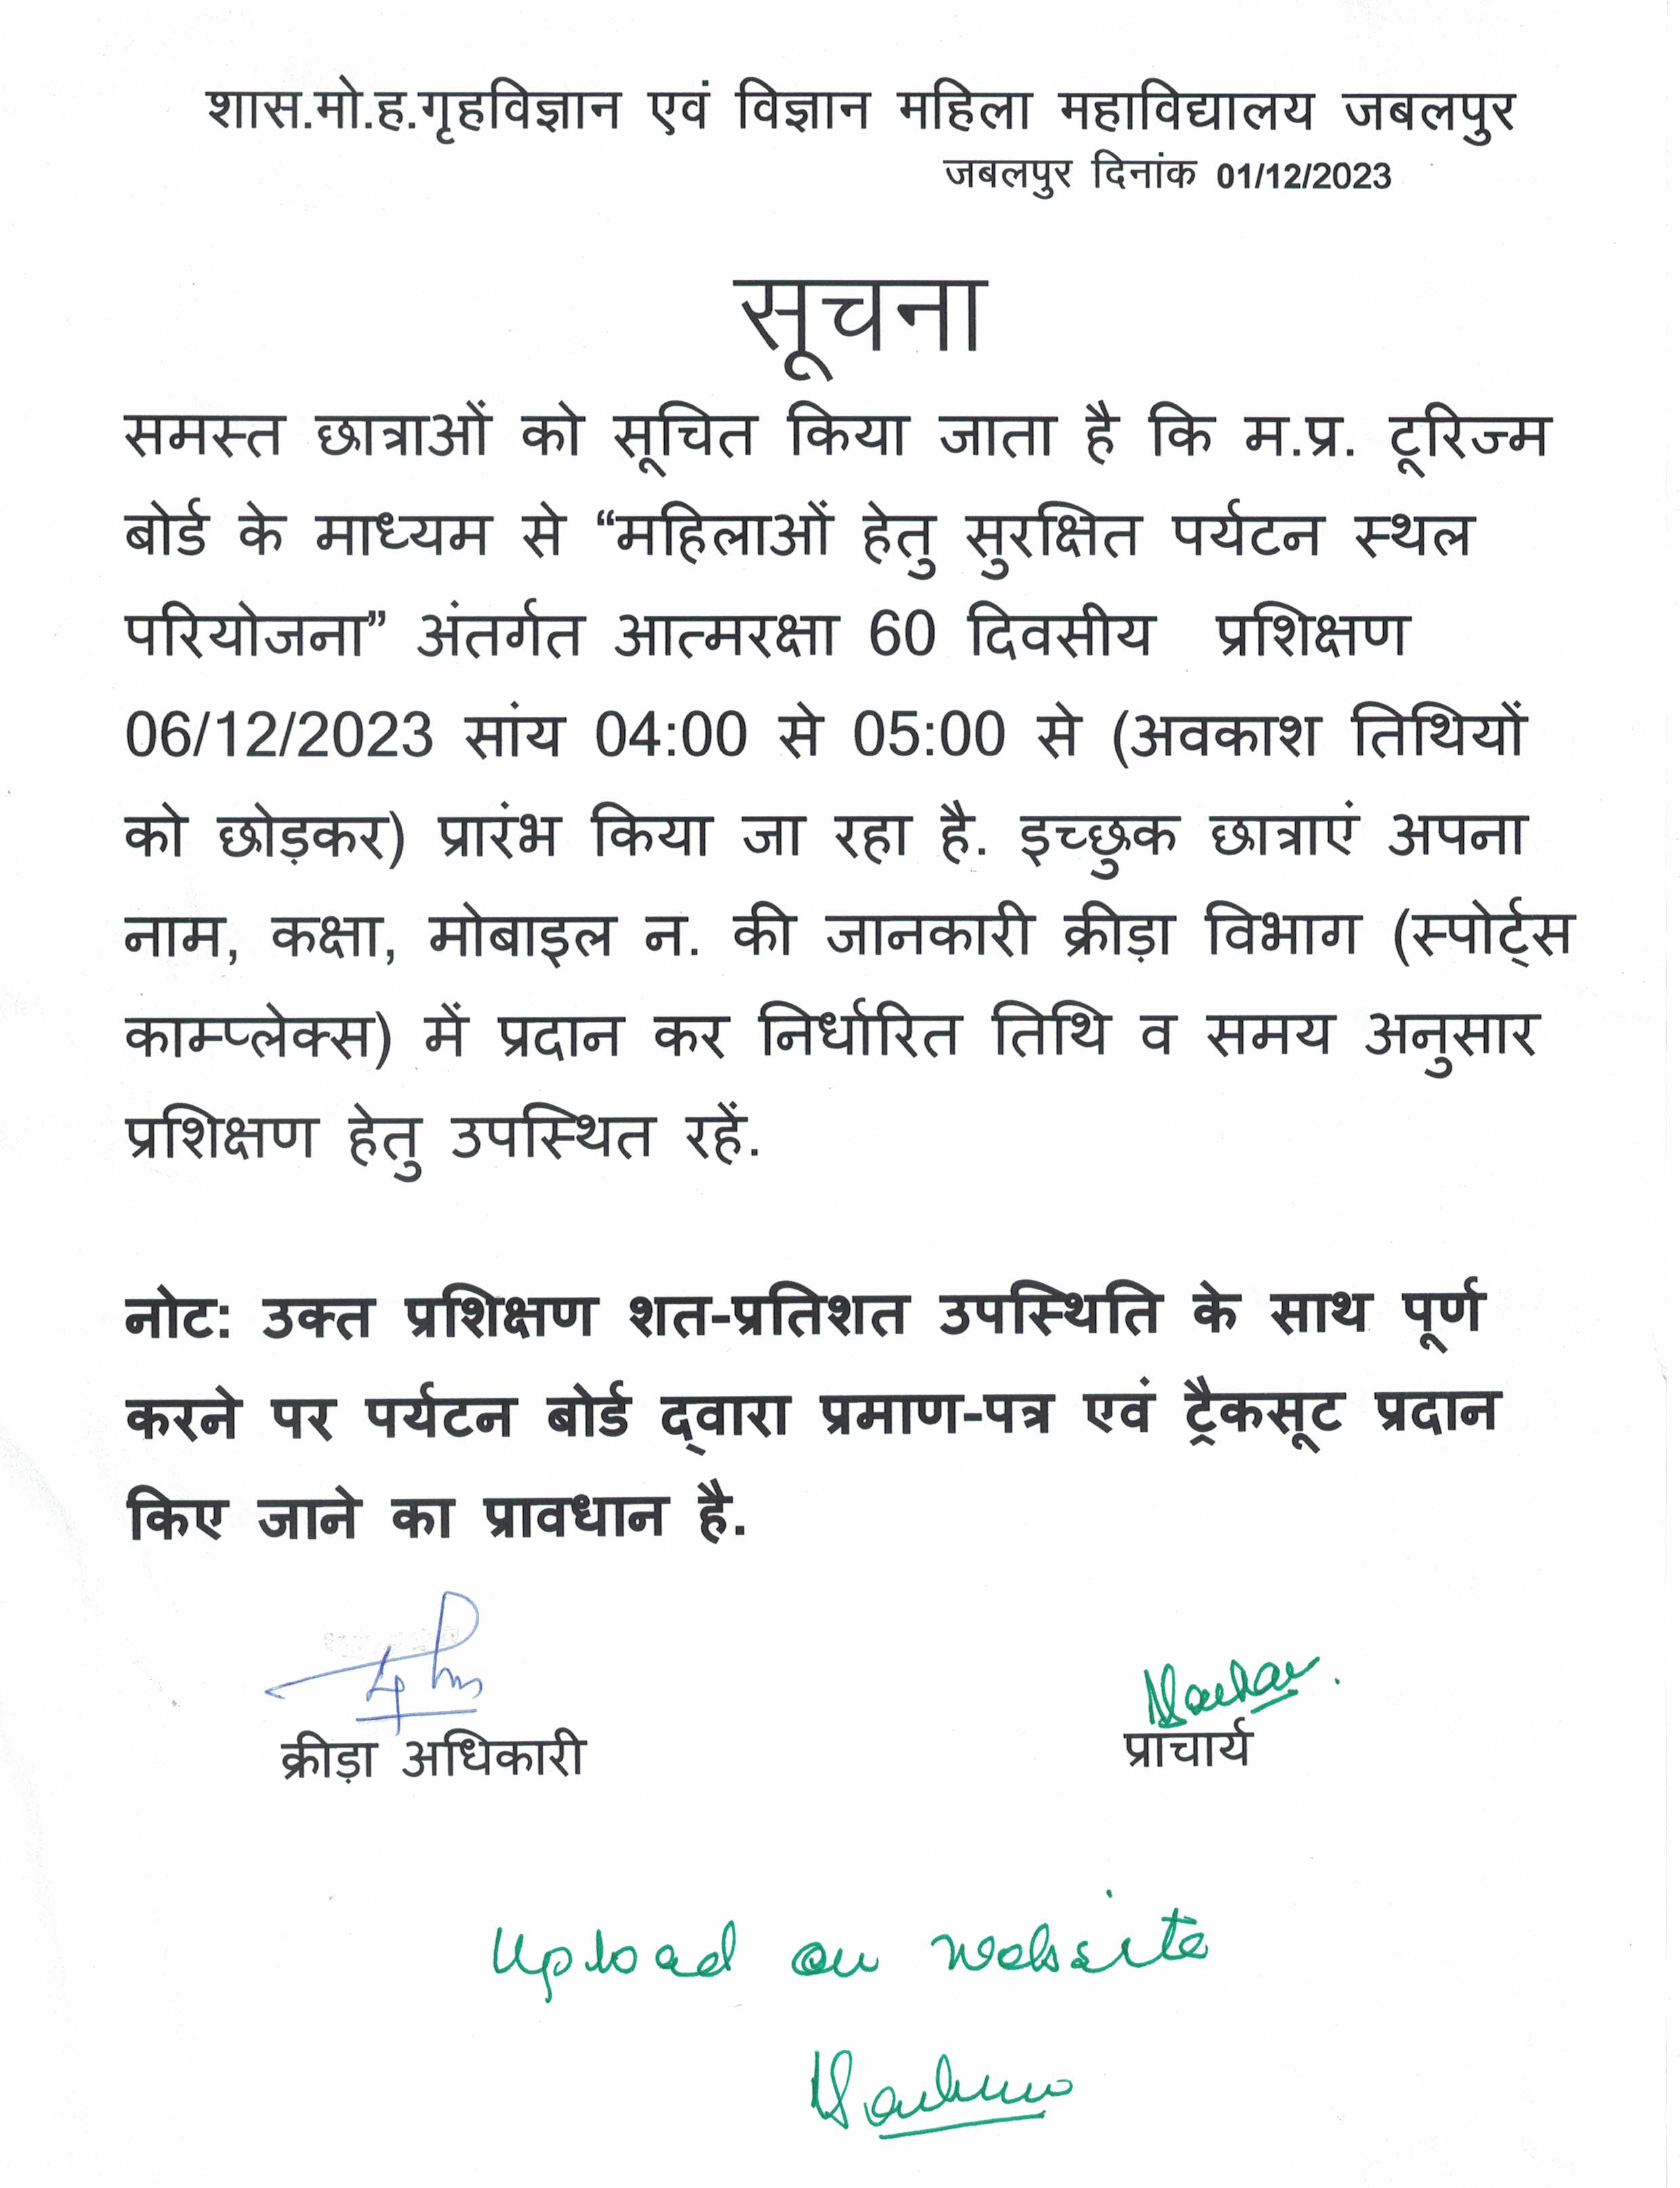 शास.मो.ह.गृहविज्ञान एवं विज्ञान महिला महाविद्यालय जबलपुर
जबलपुर दिनांक 01/12/2023
सूचना
समस्त छात्राओं को सूचित किया जाता है कि म.प्र. टूरिज्म
बोर्ड के माध्यम से “महिलाओं हेतु सुरक्षित पर्यटन स्थल
परियोजना” अंतर्गत आत्मरक्षा 60 दिवसीय प्रशिक्षण
06/12/2023 सांय 04:00 से 05:00 से (अवकाश तिथियों
को छोड़कर) प्रारंभ किया जा रहा है. इच्छुक छात्राएं अपना
नाम, कक्षा, मोबाइल न. की जानकारी क्रीड़ा विभाग (स्पोर्ट्स
काम्प्लेक्स) में प्रदान कर निर्धारित तिथि व समय अनुसार
प्रशिक्षण हेतु उपस्थित रहें.
नोट: उक्त प्रशिक्षण शत-प्रतिशत उपस्थिति के साथ पूर्ण
करने पर पर्यटन बोर्ड द्वारा प्रमाण-पत्र एवं ट्रैकसूट प्रदान
किए जाने का प्रावधान है.
क्रीड़ा अधिकारी
प्राचार्य
Upload on website